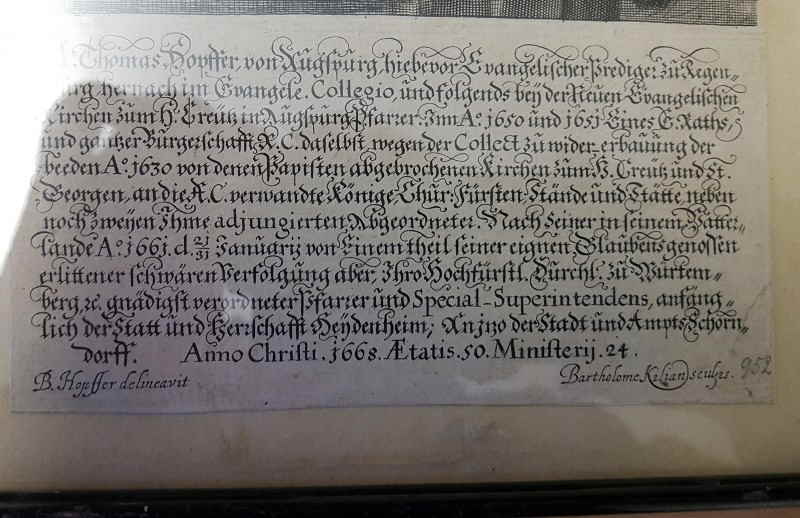 Thomas Hopffer, von Augspurg, hiebevor Evangelischer Prediger zu Regen„
hernach im Evangele. Collegio, und folgends bey der Neuen Evangelischen
Kirchen zum H. Creütz in Augspurg Pfarrer. Inn Aº. 1650 und 1651 Eines E. Raths,
und gantzer Burgerschafft A. C. daselbst, wegen der Collect zu wider-erbauung der
beeden Aº. 1630 von denen Papisten abgebrochenen Kirchen zum H. Creütz und St.
Georgen, an die A. C. verwandte Könige, Chur-Fürsten, Stände und Stätte, neben
noch zweyen Ihme adjungierten, Abgeordneter. Nach seiner in seinem Vatter„
lande Aº. 1661. d. 21/31 Januarij von Einem theil seiner eignen Glaubensgenossen
erlittener schwären Verfolgung aber, Ihro Hochfürstl. Durchl. zu Würtem„
berg, ꝛc. gnädigst verordneter Pfarrer und Special-Superintendens, anfäng„
lich der Statt und Herrschafft Heydenheim; Anjzo der Stadt und Ampts Schorn„
dorff. Anno Christi. 1668. Ætatis. 50. Ministerij. 24.
B. Hopffer delineavit Bartholome Kilian sculps. 952